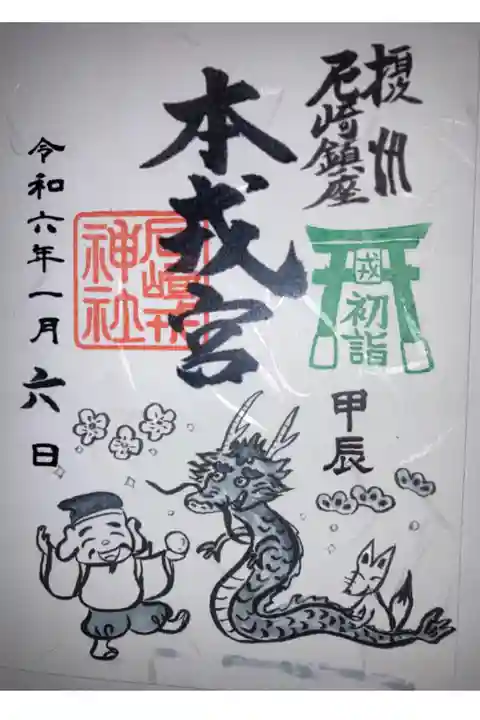 摂州
尼崎鎮座
戎
初詣
甲辰
本戎宮
尼崎戎
神社
令和六年一月六日